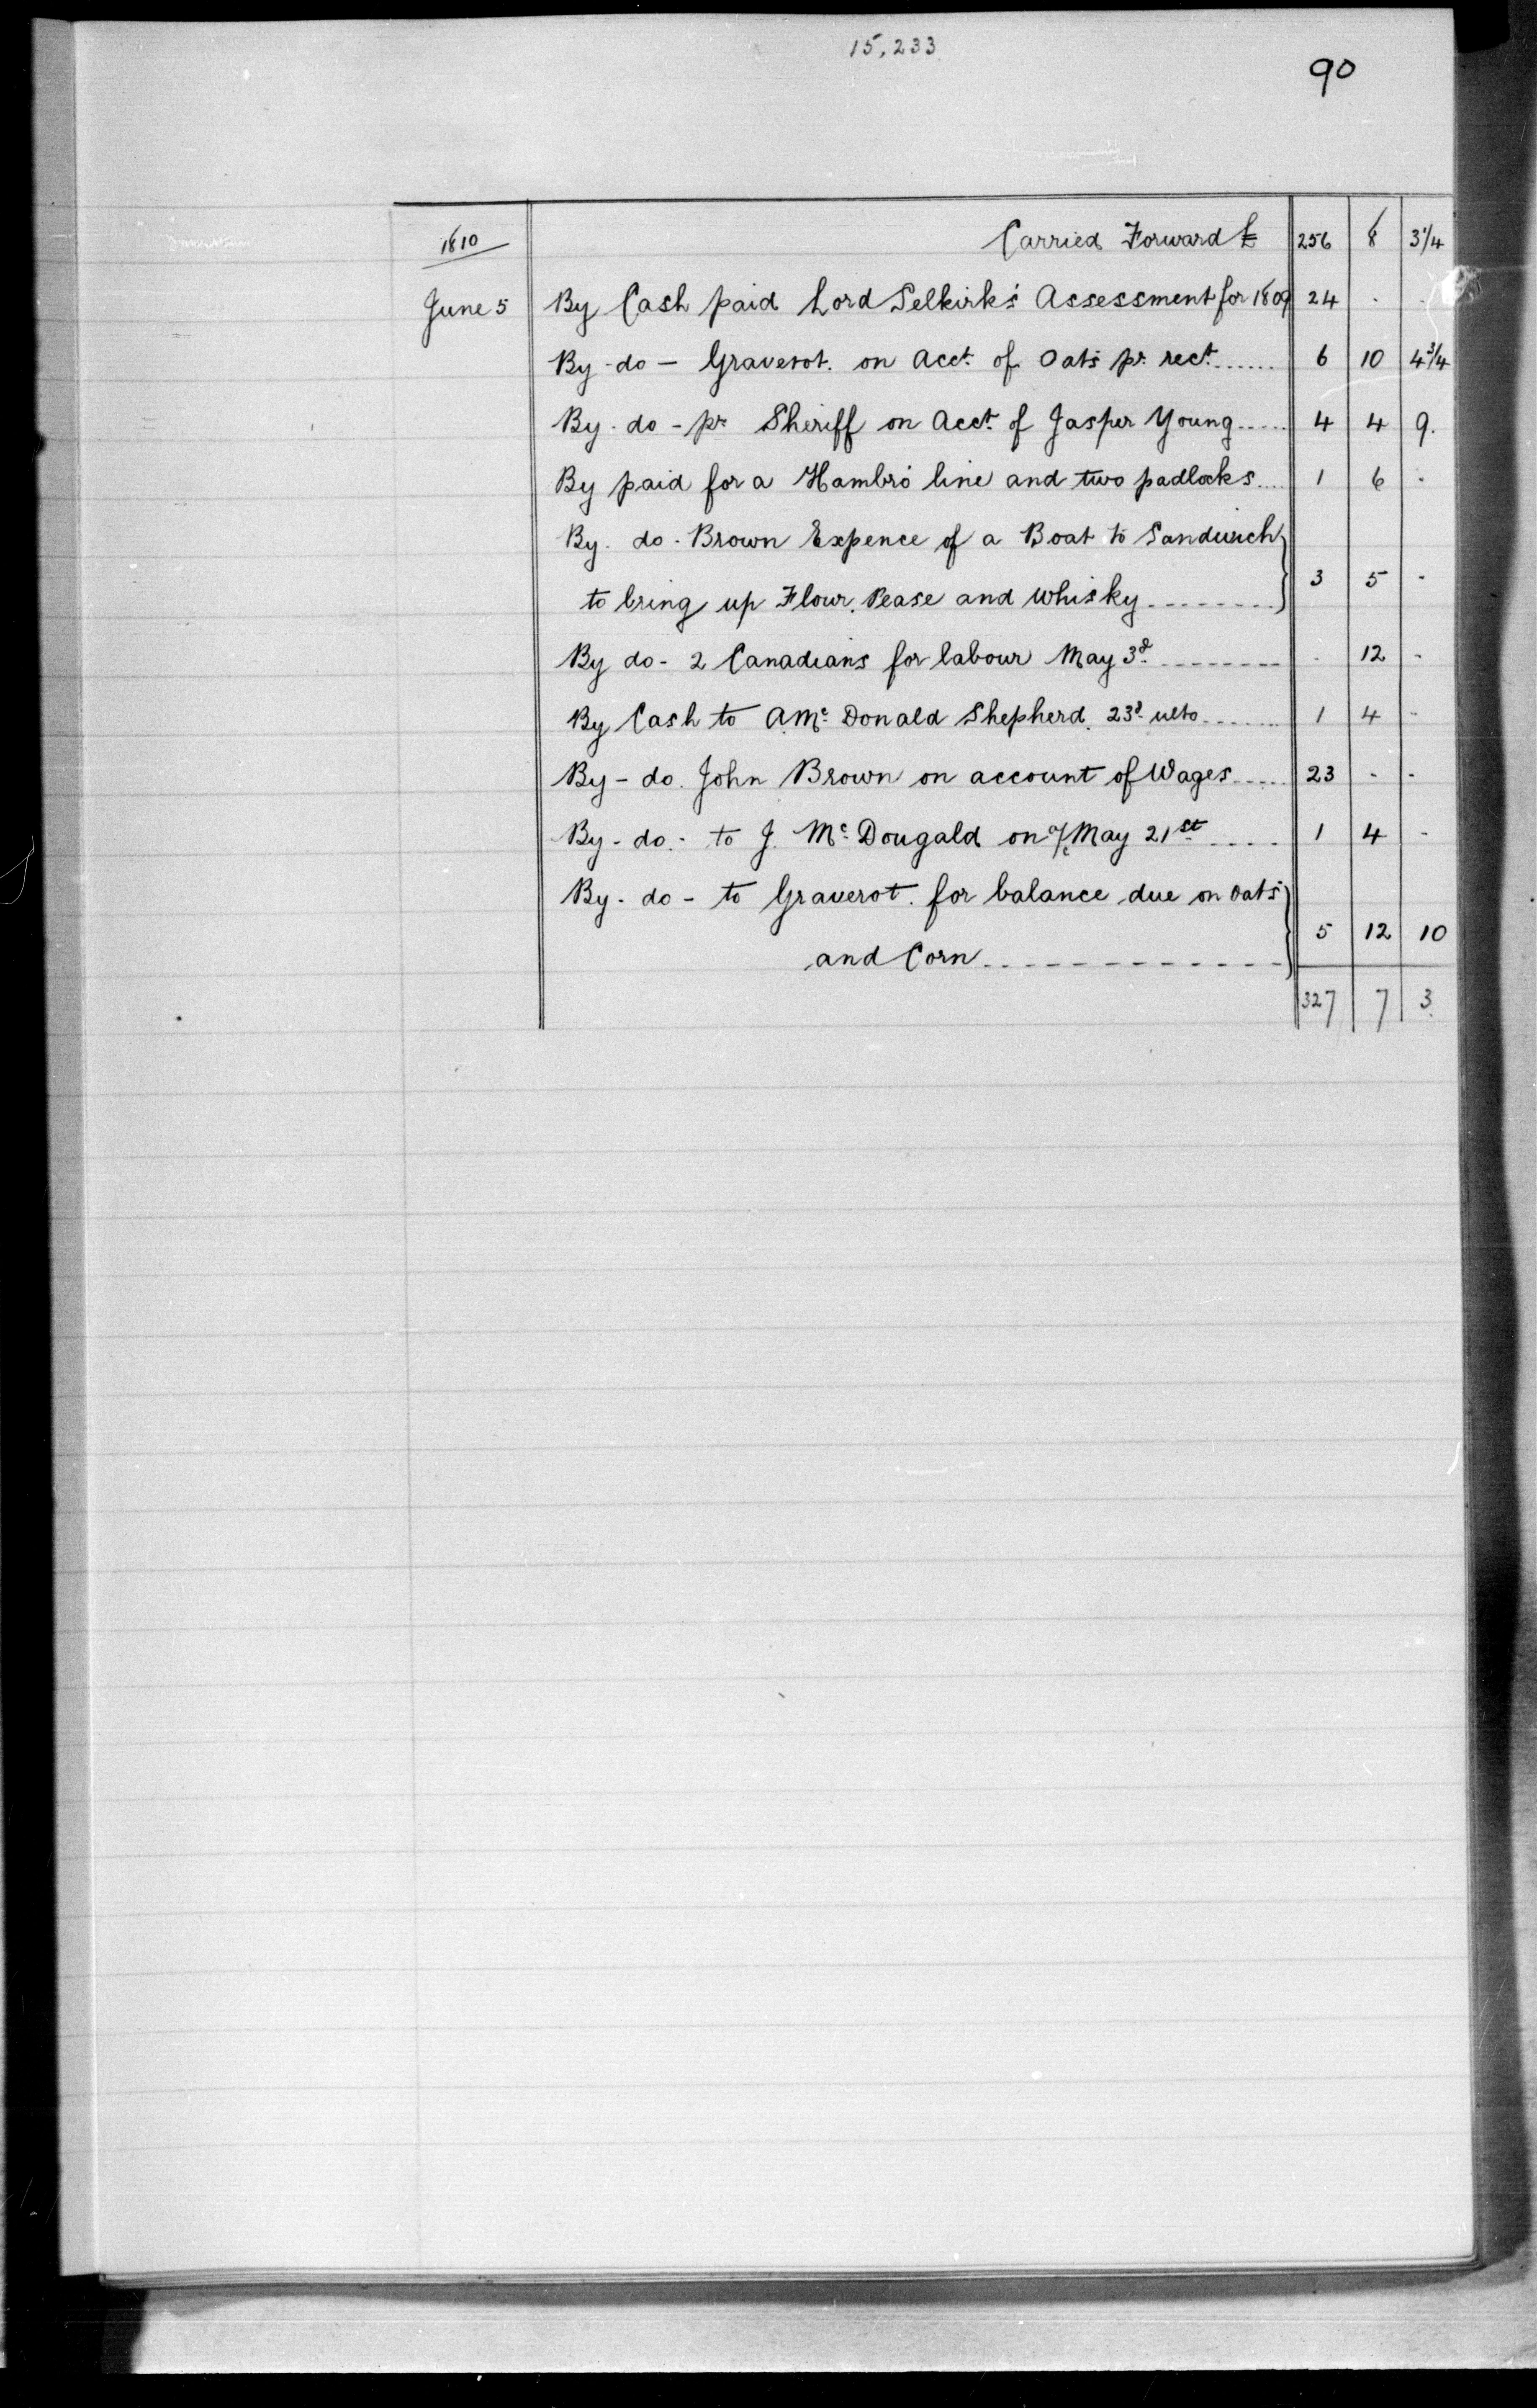 15,233
90
1810 Carried Forward £ 256 8 3 1/4
June 5 By Cash paid Lord Selkirk's Assessment for 1809 24 . .
By - do - Graverot. on Acct. of Oats pr. rect. ...... 6 10 4 3/4
By. do - pr Sheriff on Acct. of Jasper Young ..... 4 4 9.
By paid for a Hambro' line and two padlocks .... 1 6 .
By. do. Brown Expence of a Boat to Sandwich
to bring up Flour, Pease and Whisky -------- } 3 5 -
By do - 2 Canadians for labour May 3d. -------- . 12 -
By Cash to A. Mc Donald Shepherd. 23d. ulto ....... 1 4 -
By - do. John Brown on account of Wages ..... 23 - -
By - do. - to J. Mc Dougald on a/c May 21st .... 1 4 -
By - do - to Graverot. for balance due on Oats
and Corn ------------ } 5 12 10
327 7 3